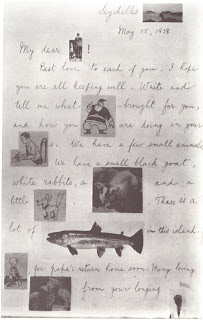 Seychelles
May 15, 1938
My dear !
Best love to each of you. I hope
you are all keeping well. Write and
tell me what brought for you,
and how you are doing in your
s. We have a few small animals
We have a small black goat,
white rabbits, a and a
little There is a
lot of in the island.
for papa's return home soon. Many loving
from your longing